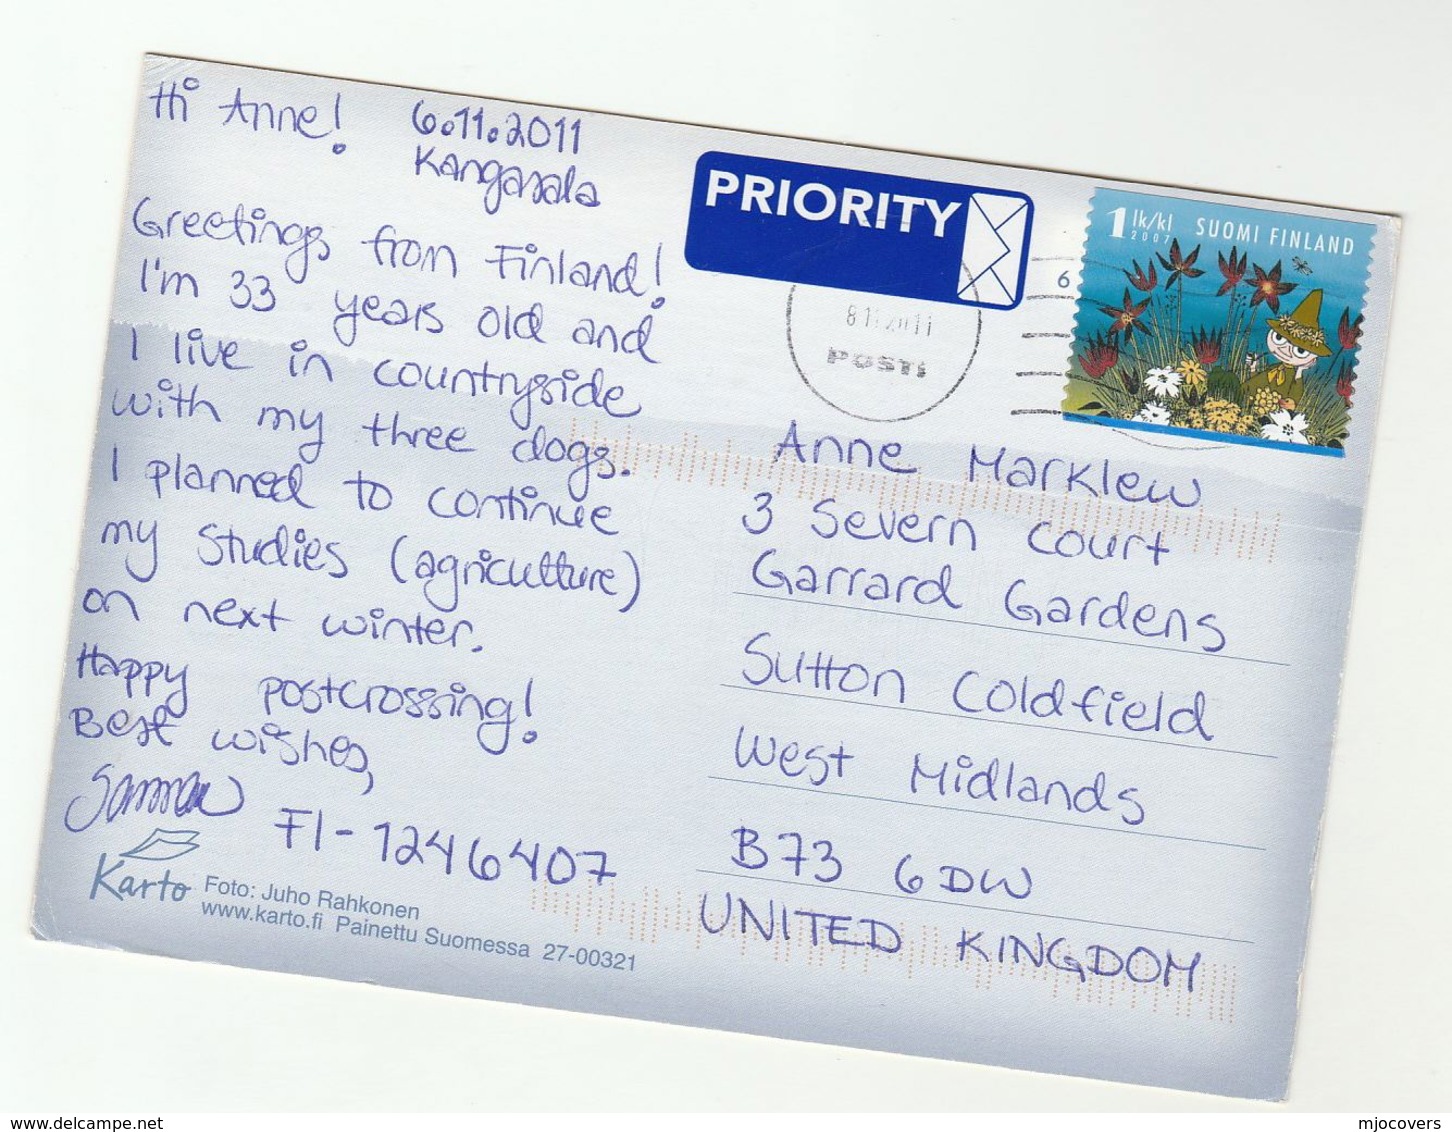 Hi Anne! 6.11.2011
Kangasala
Greetings from Finland!
I'm 33 years old and
I live in countryside
with my three dogs.
I planned to continue
my studies (agriculture)
on next winter.
Happy postcrossing!
Best wishes,
FI-1246407
Karto
Foto: Juho Rahkonen
www.karto.fi Painettu Suomessa 27-00321
PRIORITY
1 lk/kl
2007
SUOMI FINLAND
6
8 11 2011
POSTI
Anne Marklew
3 Severn Court
Garrard Gardens
Sutton Coldfield
West Midlands
B73 6DW
UNITED KINGDOM
www.delcampe.net
mjocovers